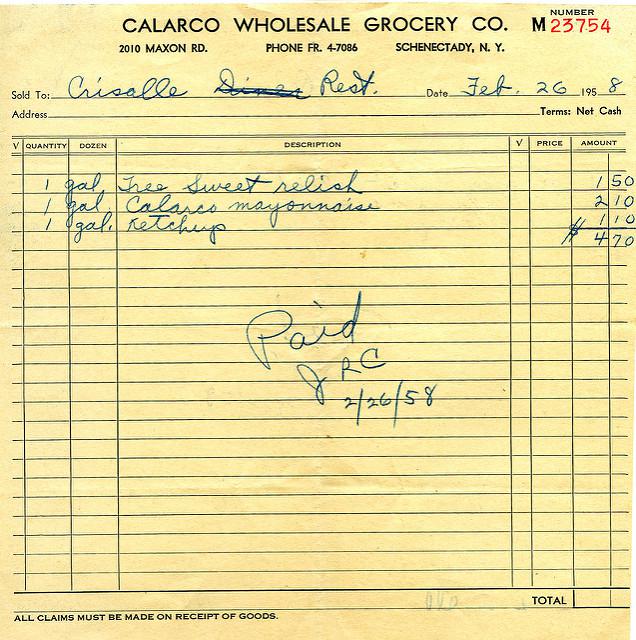 NUMBER
CALARCO WHOLESALE GROCERY CO. M 23754
2010 MAXON RD. PHONE FR. 4-7086 SCHENECTADY, N. Y.
Sold To: Crisalle Diner Rest. Date Feb. 26 1958
Address Terms: Net Cash
√ QUANTITY DOZEN DESCRIPTION √ PRICE AMOUNT
1 gal. Tree Sweet relish 1 50
1 gal. Calarco mayonnaise 2 10
1 gal. Ketchup 1 10
$ 4 70
Paid
JRC
2/26/58
TOTAL
ALL CLAIMS MUST BE MADE ON RECEIPT OF GOODS.